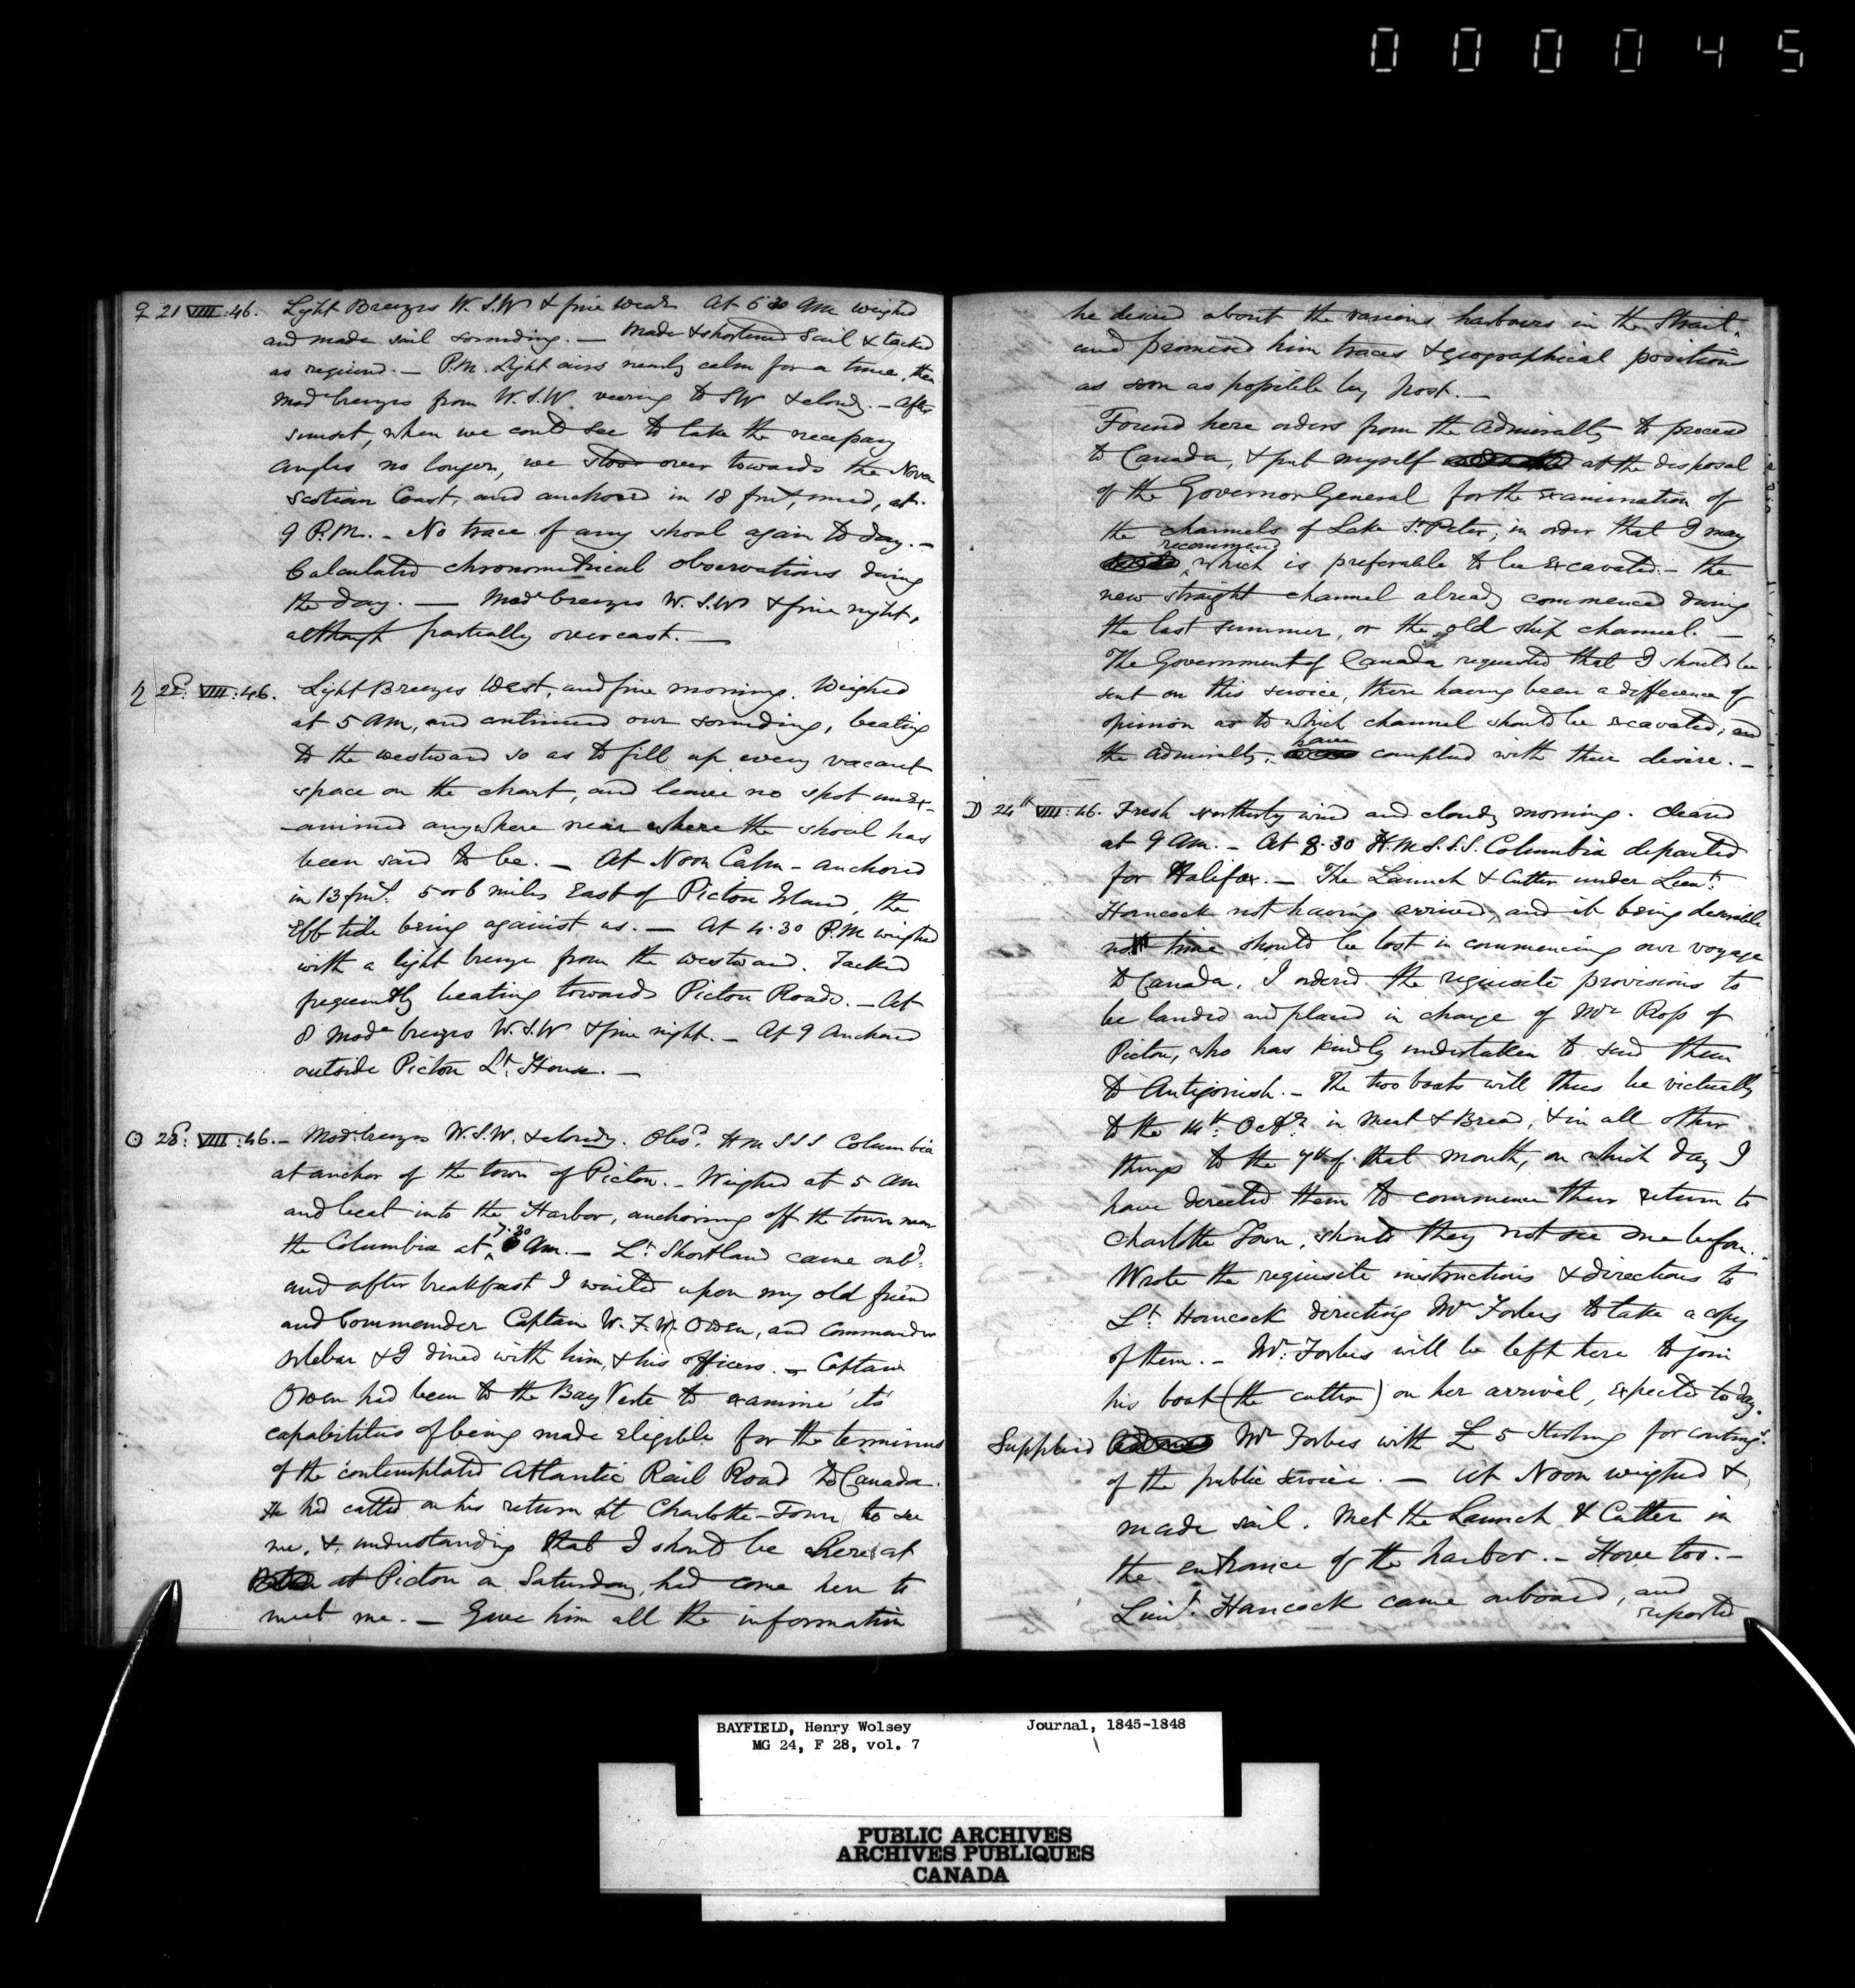 000045
♀ 21 VIII:46. Light Breezes W.S.W & fine wear. At 6 30 AM weighed
and made sail sounding. — Made & shortened Sail & tacked
as required. — P.M. Light airs nearly calm for a time, then
mode breezes from W.S.W. veering to SW & cloudy. — After
sunset, when we could see to take the necessary
angles no longer, we stood over towards the Nova
Scotian Coast, and anchored in 18 fms, mud, at
9 P.M. — No trace of any shoal again to day. —
Calculated chronometrical observations during
the day. — Mode breezes W.S.W & fine night,
although partially overcast. —
♄ 22d: VIII:46. Light Breezes West, and fine morning. Weighed
at 5 AM, and continued our sounding, beating
to the westward so as to fill up every vacant
space on the chart, and leave no spot unex-
-amined anywhere near where the shoal has
been said to be. — At Noon Calm — anchored
in 13 fms. 5 or 6 miles East of Pictou Island, the
Ebb tide being against us. — At 4.30 P.M weighed
with a light breeze from the westward. Tacked
frequently beating towards Pictou Roads. — At
8 Mode breezes W.S.W & fine night. — At 9 Anchored
outside Pictou Lt. House. —
☉ 23d: VIII:46. — Mod. breezes W.S.W. & cloudy. Obsd. HMSSS Columbia
at anchor of the town of Pictou. — Weighed at 5 AM
and beat into the Harbor, anchoring off the town near
the Columbia at 7.30 AM. — Lt. Shortland came onbd.
and after breakfast I waited upon my old friend
and Commander Captain W.F.W. Owen, and Commander
Orlebar & I dined with him, & his officers. — Captain
Owen had been to the Bay Verte to examine its
capabilities of being made eligible for the terminus
of the contemplated Atlantic Rail Road to Canada.
He had called on his return at Charlotte-Town to see
me, & understanding that I should be here at
at Pictou on Saturday, had come here to
meet me. — Gave him all the information
he desired about the various harbours in the Strait,
and promised him traces & geographical positions
as soon as possible by Post. —
Found here orders from the Admiralty to proceed
to Canada, & put myself at the disposal
of the Governor General for the examination of
the channels of Lake St. Peter, in order that I may
recommend which is preferable to be excavated — the
new straight channel already commenced during
the last summer, or the old ship channel. —
The Government of Canada requested that I should be
sent on this service, there having been a difference of
opinion as to which channel should be excavated; and
the Admiralty, have complied with their desire. —
☽ 24th VIII:46. Fresh Northerly wind and cloudy morning. Cleared
at 9 AM. — At 8.30 H.M.S.S.S. Columbia departed
for Halifax. — The Launch & Cutter under Lieut.
Hancock not having arrived, and it being desirable
no time should be lost in commencing our voyage
to Canada, I ordered the requisite provisions to
be landed and placed in charge of Mr Ross of
Pictou, who has kindly undertaken to send them
to Antigonish. — The two boats will thus be victually
to the 14th: Octr. in Meat & Bread, & in all other
things to the 7th of that month, on which day I
have directed them to commence their return to
Charlotte Town, should they not see me before. —
Wrote the requisite instructions & directions to
Lt. Hancock directing Mr Forbes to take a copy
of them. — Mr. Forbes will be left here to join
his boat (the cutter) on her arrival, expected to day.
Supplied Mr Forbes with £5 Sterling for contings.
of the public service. — At Noon weighed &
made sail. Met the Launch & Cutter in
the entrance of the harbor. — Hove too. —
Lieut. Hancock came onboard, and
reported
BAYFIELD, Henry Wolsey Journal, 1845-1848
MG 24, F 28, vol. 7
PUBLIC ARCHIVES
ARCHIVES PUBLIQUES
CANADA